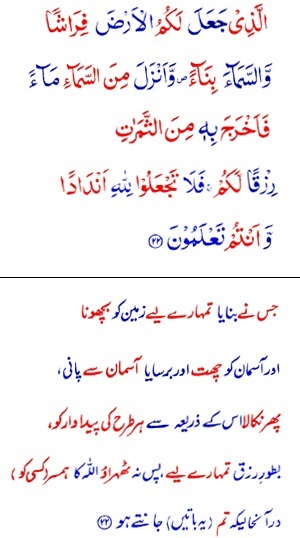 الَّذِىْ جَعَلَ لَكُمُ الْاَرْضَ فِرَاشًا
وَّالسَّمَآءَ بِنَآءً ص وَّاَنْزَلَ مِنَ السَّمَآءِ مَآءً
فَاَخْرَجَ بِهٖ مِنَ الثَّمَرٰتِ
رِزْقًا لَّكُمْ ۚ فَلَا تَجْعَلُوْا لِلّٰهِ اَنْدَادًا
وَّ اَنْتُمْ تَعْلَمُوْنَ ﴿۲۲﴾
جس نے بنایا تمہارے لیے زمین کو بچھونا
اور آسمان کو چھت اور برسایا آسمان سے پانی،
پھر نکالا اس کے ذریعہ سے ہر طرح کی پیداوار کو،
بطور رزق تمہارے لیے، پس نہ ٹھہراؤ اللہ کا ہمسر (کسی کو)
درآنحالیکہ تم (یہ باتیں) جانتے ہو ﴿۲۲﴾